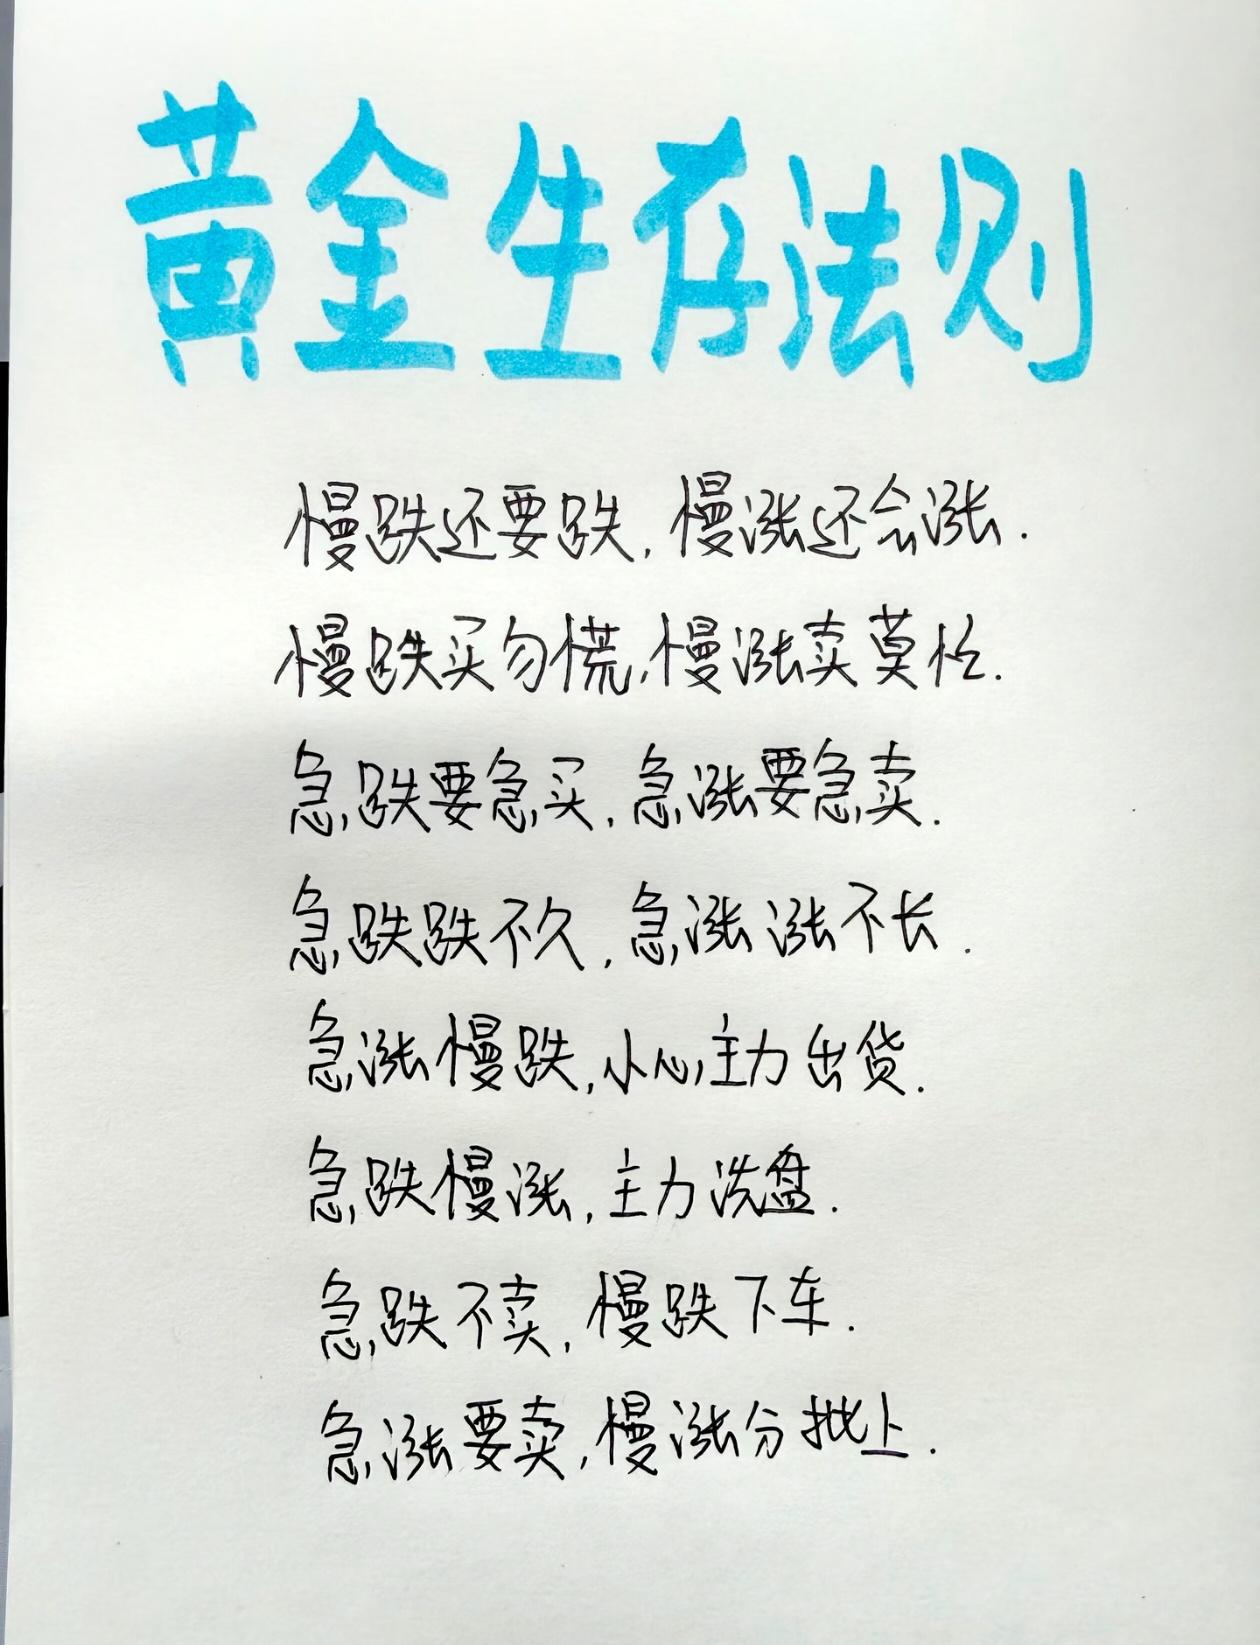 黄金生存法则
慢跌还要跌,慢涨还会涨.
慢跌买勿慌,慢涨卖莫忙.
急跌要急买,急涨要急卖.
急跌跌不久,急涨涨不长.
急涨慢跌,小心主力出货.
急跌慢涨,主力洗盘.
急跌不卖,慢跌下车.
急涨要卖,慢涨分批上.